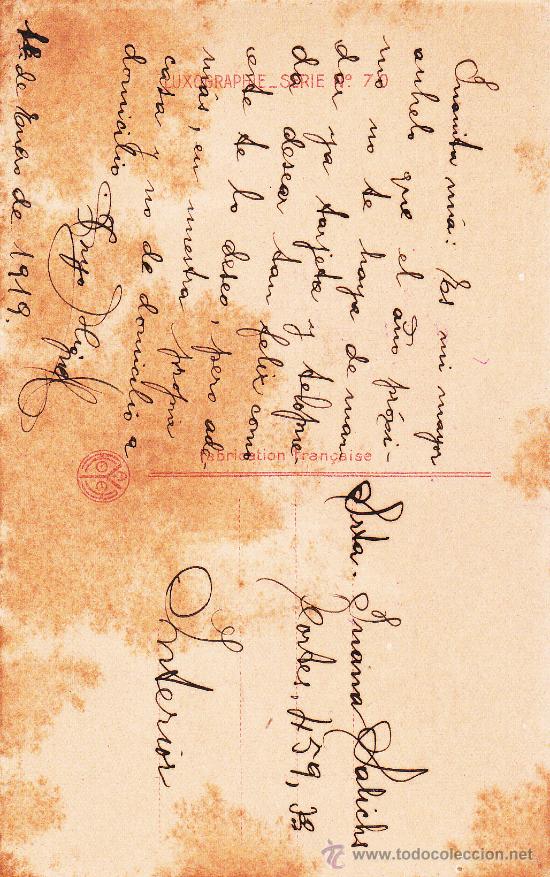 LUXOGRAPHIE_SERIE Nº 70
Juanita mía: Es mi mayor
anhelo que el año próxi-
mo no te haya de man
dar ya tarjeta y te
da desear tan feliz como
este te lo deseo, pero ade-
más, en nuestra propia
casa y no de domicilio a
domicilio
Tuyo
1º de Enero de 1919.
Fabrication Française
Srta. Juana Salichs
Cortes, 459, 3º
Interior
www.todocoleccion.net